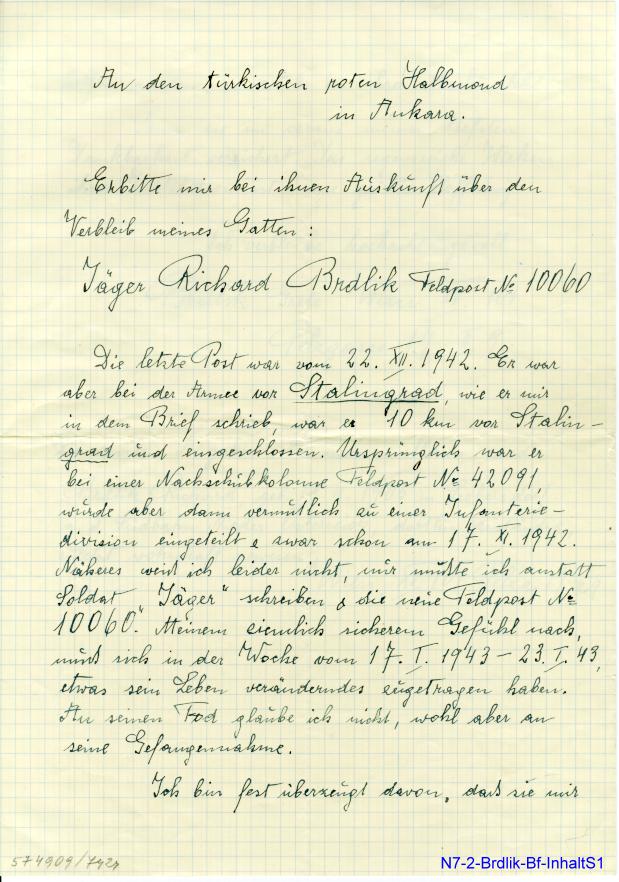 An den türkischen roten Halbmond
in Ankara.
Erbitte mir bei ihnen Auskunft über den
Verbleib meines Gatten:
Jäger Richard Brdlik Feldpost № 10060
Die letzte Post war vom 22. XII. 1942. Er war
aber bei der Armee vor Stalingrad, wie er mir
in dem Brief schrieb, war er 10 km vor Stalin-
grad und eingeschlossen. Ursprünglich war er
bei einer Nachschubkolonne Feldpost № 42091,
wurde aber dann vermutlich zu einer Infanterie-
division eingeteilt & zwar schon am 17. XI. 1942.
Näheres weiß ich leider nicht, nur mußte ich anstatt
Soldat „Jäger" schreiben & die neue Feldpost №
10060. Meinem ziemlich sicherem Gefühl nach,
muß sich in der Woche vom 17. I. 1943 – 23. I. 43,
etwas sein Leben veränderndes zugetragen haben.
An seinen Tod glaube ich nicht, wohl aber an
seine Gefangennahme.
Ich bin fest überzeugt davon, daß sie mir
574909/7424
N7-2-Brdlik-Bf-InhaltS1